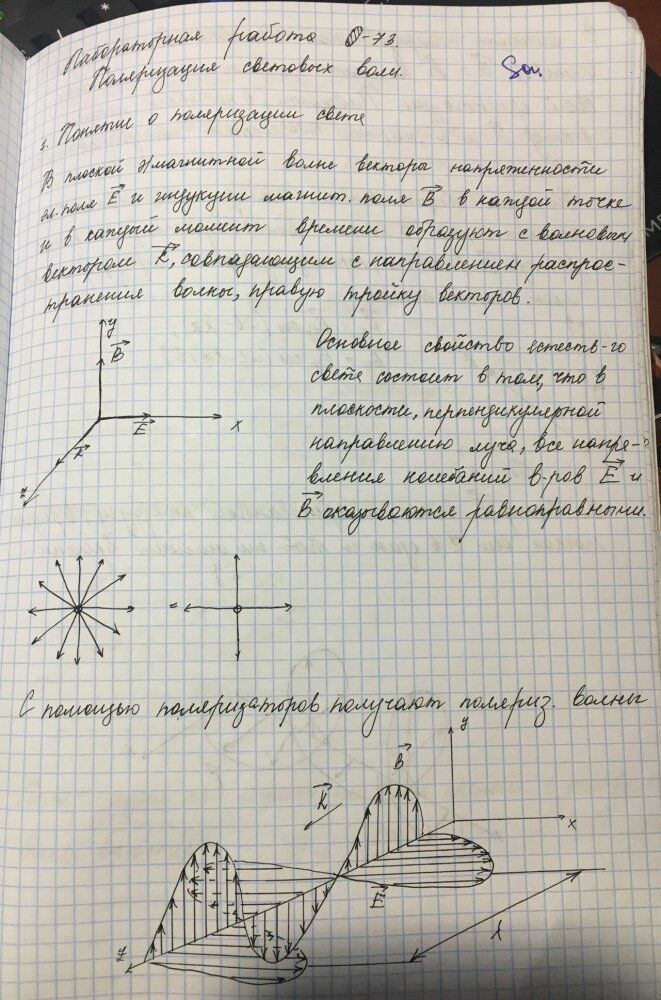 Лабораторная работа О-73.
Поляризация световых волн.
1. Понятие о поляризации света
В плоской э/магнитной волне векторы напряженности
эл. поля E и индукции магнит. поля B в каждой точке
и в каждый момент времени образуют с волновым
вектором K, совпадающим с направлением распрос-
транения волны, правую тройку векторов.
y
B
x
E
K
z
Основное свойство естеств-го
света состоит в том, что в
плоскости, перпендикулярной
направлению луча, все напра-
вления колебаний в-ров E и
B оказываются равноправными.
=
С помощью поляризаторов получают поляриз. волны
y
B
K
x
E
λ
z